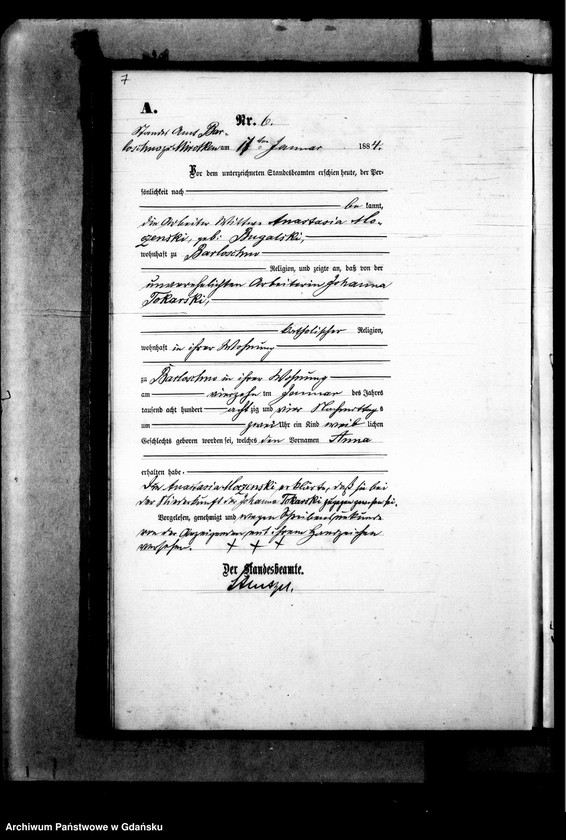 7
A.
Nr. 6.
Standes Amt Bar-
am 17 ten Januar 1884.
Vor dem unterzeichneten Standesbeamten erschien heute, der Per-
sönlichkeit nach
be kannt,
die Arbeiter Wittwe Anastasia Mlo-
zenski, geb: Bugalski,
wohnhaft zu Barloschno
Religion, und zeigte an, daß von der
unverehelichten Arbeiterin Johanna
Tokarski,
katholischer Religion,
wohnhaft in ihrer Wohnung
zu Barloschno in ihrer Wohnung
am vierzehn ten Januar des Jahres
tausend acht hundert achtzig und vier Nachmittags
um zwei Uhr ein Kind weib lichen
Geschlechts geboren worden sei, welches den Vornamen Anna
erhalten habe.
Die Anastasia Mlozenski erklärte, daß sie bei
der Niederkunft der Johanna Tokarski zugegen gewesen sei.
Vorgelesen, genehmigt und wegen Schreibensunkunde
von der Anzeigenden mit ihrem Handzeichen
versehen. + + +
Der Standesbeamte.
Archiwum Państwowe w Gdańsku